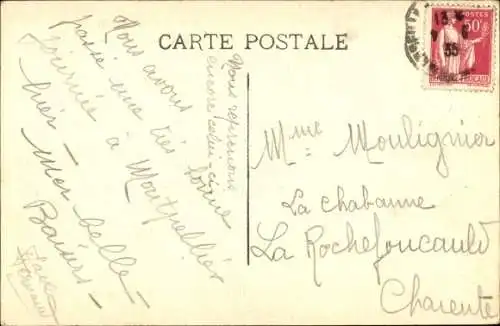 CARTE POSTALE
Nous avons
passé une très bonne
journée à Montpellier
hier - Mer belle -
Baisers -
Nous reprenons
encore celui-ci
Mme Moulignier
La chabanne
La Rochefoucauld
Charente
POSTES
50c
13
35